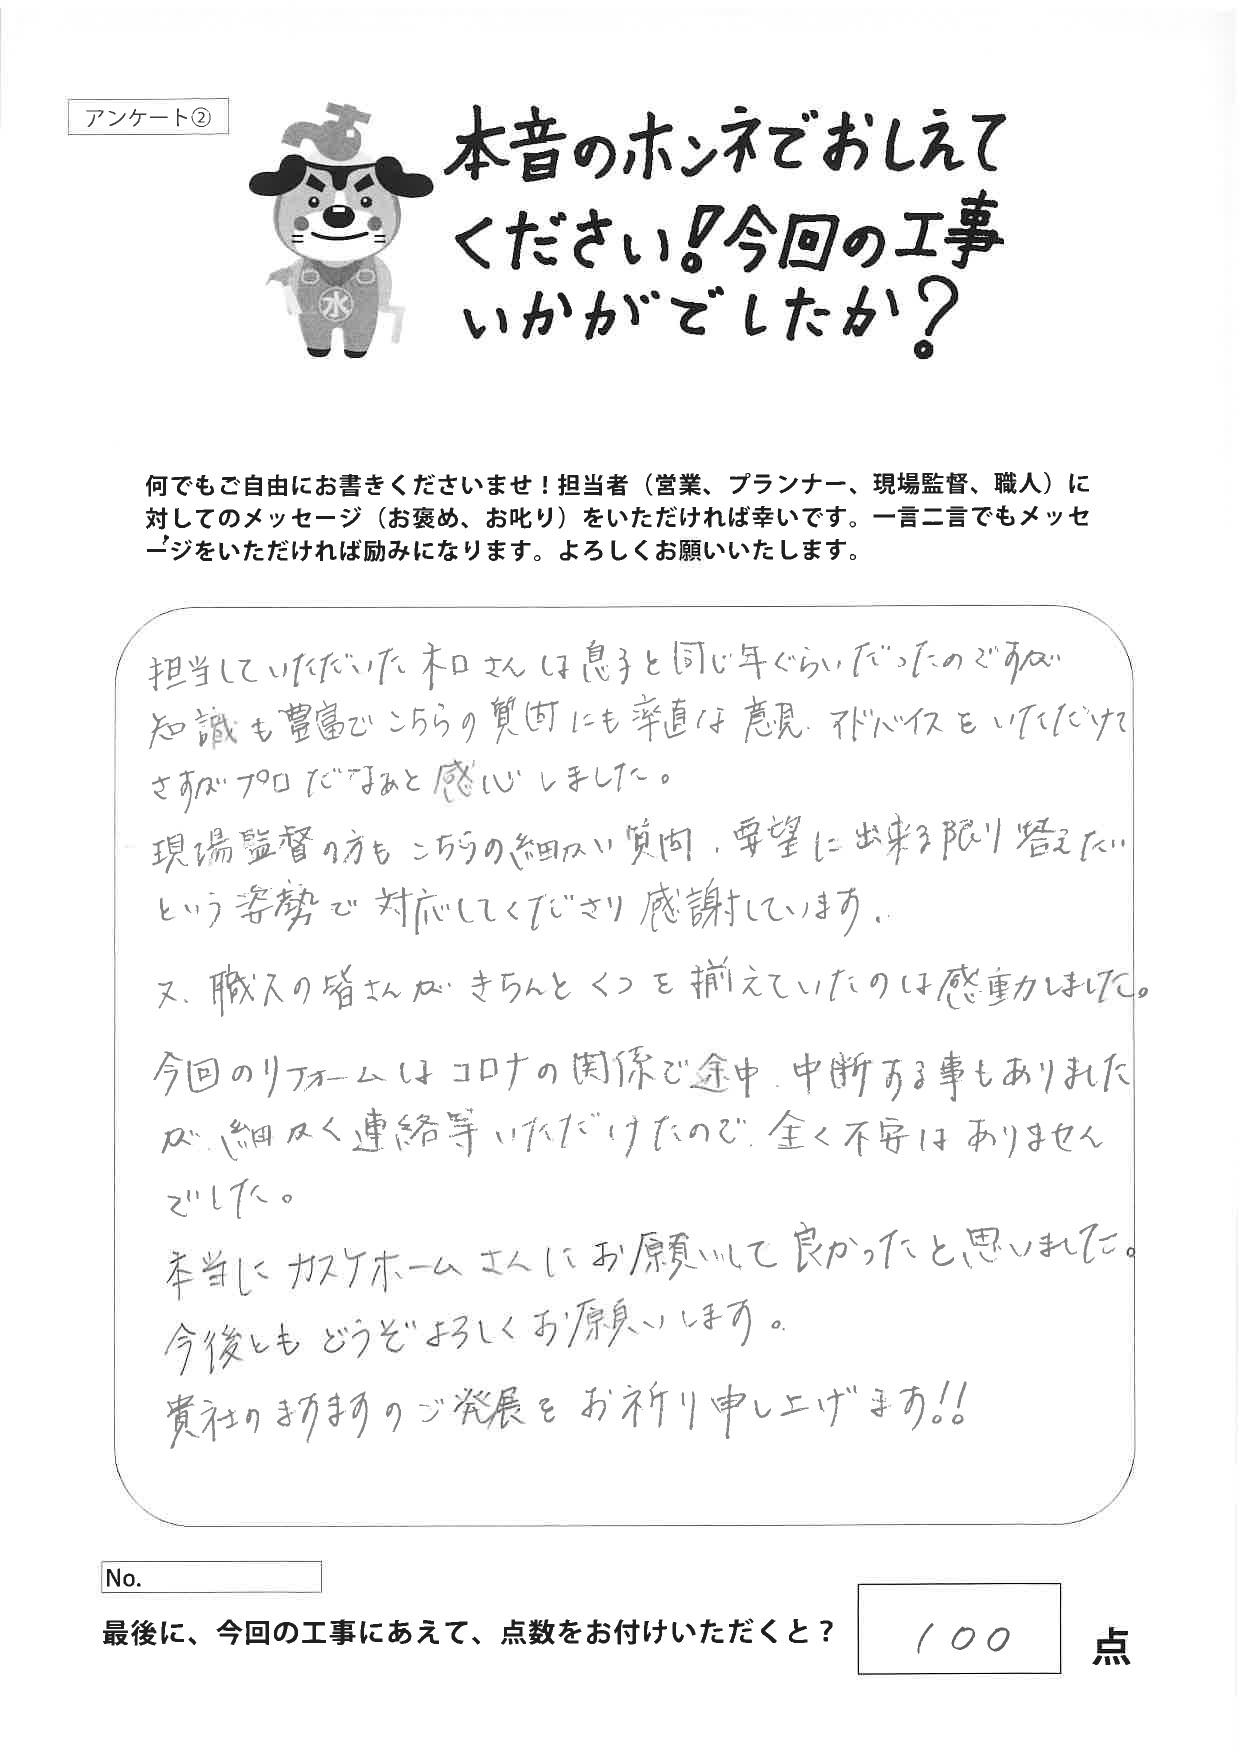 アンケート②
本音のホンネでおしえて
ください!今回の工事
いかがでしたか?
水
何でもご自由にお書きくださいませ！担当者（営業、プランナー、現場監督、職人）に
対してのメッセージ（お褒め、お叱り）をいただければ幸いです。一言二言でもメッセ
ージをいただければ励みになります。よろしくお願いいたします。
担当していただいた木口さんは息子と同じ年ぐらいだったのですが
知識も豊富でこちらの質問にも率直な意見、アドバイスをいただけて
さすがプロだなぁと感心しました。
現場監督の方もこちらの細かい質問、要望に出来る限り答えたい
という姿勢で対応してくださり感謝しています。
又、職人の皆さんがきちんとくつを揃えていたのは感動しました。
今回のリフォームはコロナの関係で途中、中断する事もありました
が、細かく連絡等いただけたので、全く不安はありません
でした。
本当にカスケホームさんにお願いして良かったと思いました。
今後ともどうぞよろしくお願いします。
貴社のますますのご発展をお祈り申し上げます!!
No.
最後に、今回の工事にあえて、点数をお付けいただくと？
100
点